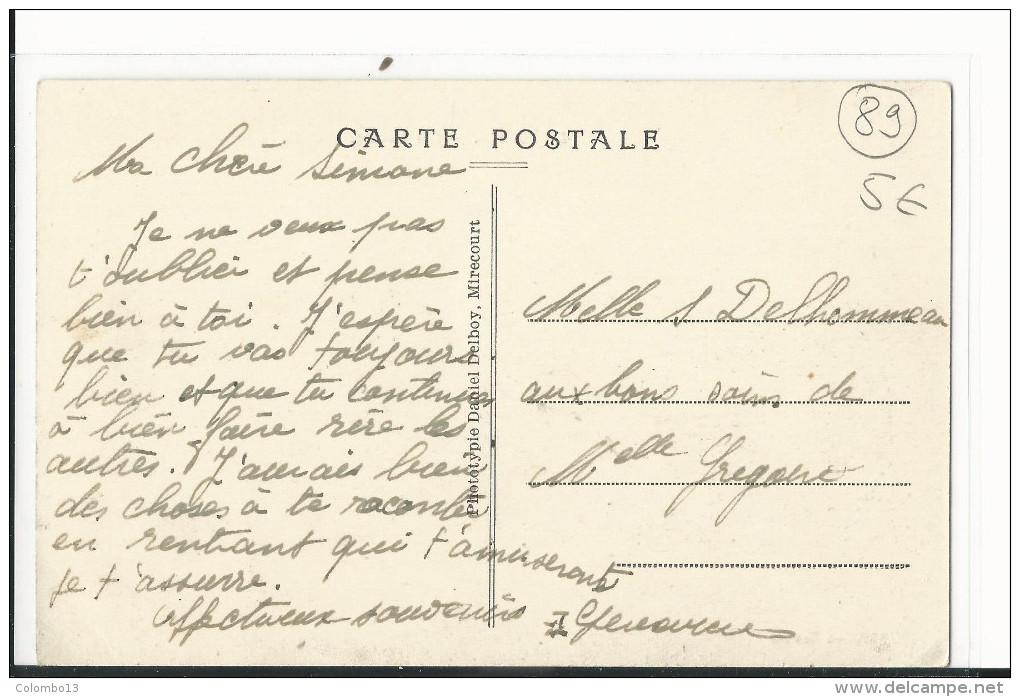 89
5€
CARTE POSTALE
Ma Chère Simone
Je ne veux pas
t'oublier et pense
bien à toi. J'espère
que tu vas toujours
bien et que tu continues
à bien faire rire les
autres. J'aurais bien
des choses à te raconter
en rentrant qui t'amuseront
je t'assure.
Affectueux souvenirs
Phototypie Daniel Delboy, Mirecourt
Melle S Delhommeau
aux bons soins de
Melle Gregoire
Colombo13
delcampe.net